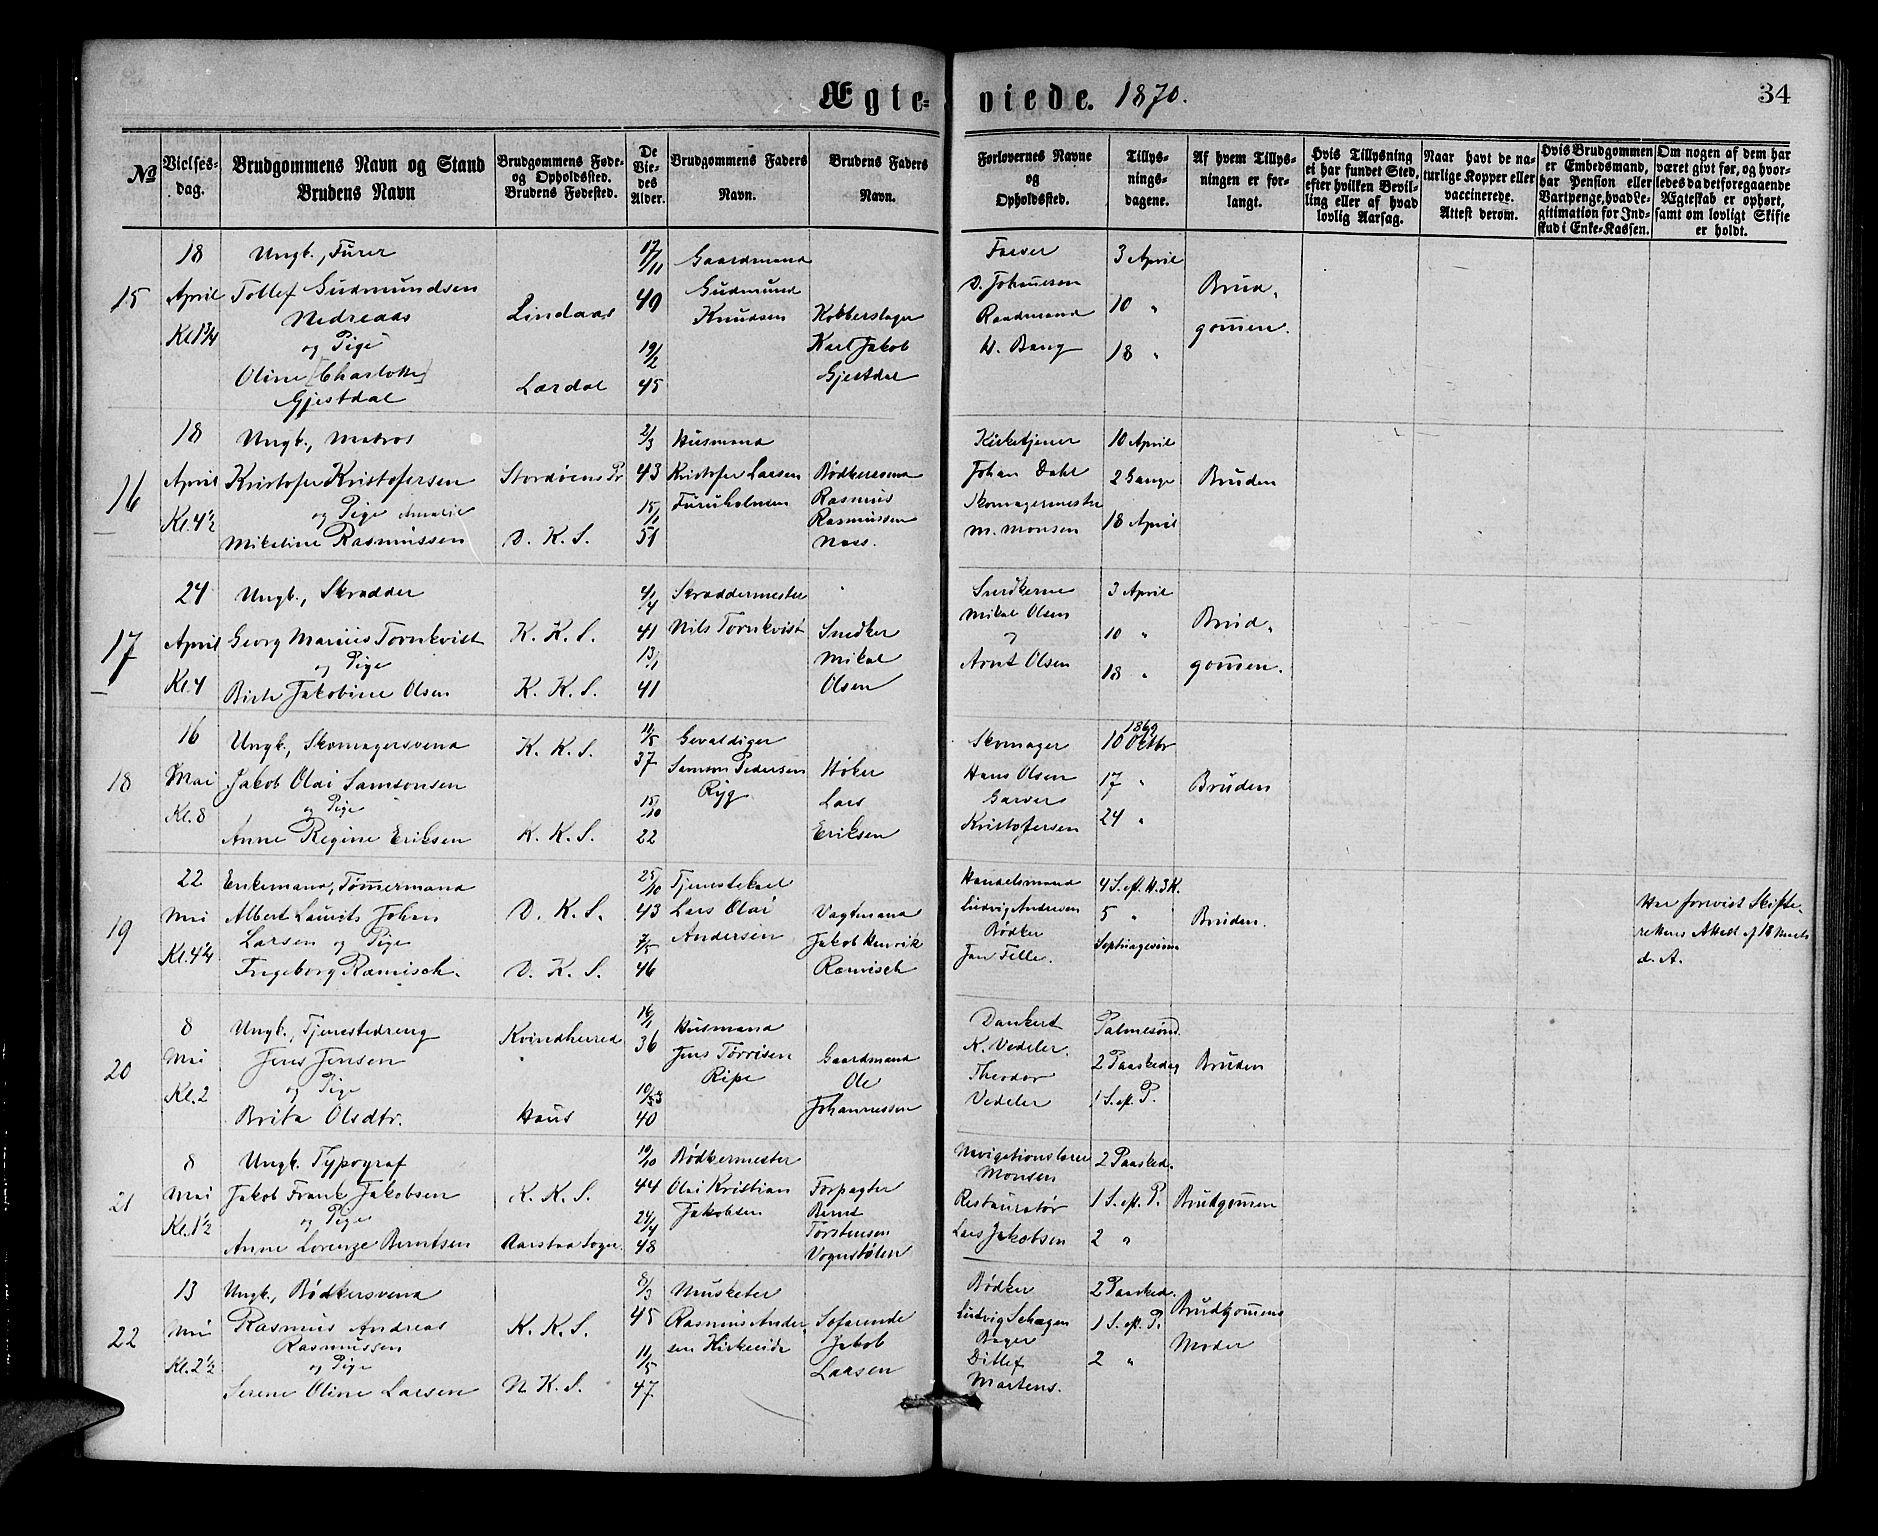 Ægte- viede. 1870.
34
No
Vielses-dag.
Brudgommens Navn og Stand
Brudens Navn
Brudgommens Føde-
og Opholdssted.
Brudens Fødested.
De
Vie-
des
Alder.
Brudgommens Faders
Navn.
Brudens Faders
Navn.
Forlovernes Navne
og
Opholdssted.
Tillys-
nings-
dagene.
Af hvem Tillys-
ningen er for-
langt.
Hvis Tillysning
ei har fundet Sted,
efter hvilken Bevil-
ling eller af hvad
lovlig Aarsag.
Naar havt de na-
turlige Kopper eller
vaccinerede.
Attest derom.
Hvis Brudgommen
er Embedsmand,
har Pension eller
Vartpenge, hvad Le-
gitimation for Ind-
skud i Enke-Kassen.
Om nogen af dem har
været givt før, og hvor-
ledes da det foregaaende
Ægteskab er ophørt,
samt om lovligt Skifte
er holdt.
15
18
April
Kl. 1¾
Ungk., Furer
Tollef Gudmundsen
Nedreaas
og Pige
Oline [Charlotte]
Gjestdal
Lindaas
Lærdal
17/11
40
19/2
45
Gaardmand
Gudmund
Knudsen
Kobberslager
Karl Jakob
Gjestdal
Farver
D. Johannesen
Raadmand
H. Bang
3 April
10 "
18 "
Brud-
gomen.
16
18
April
Kl. 4½
Ungk., Matros
Kristofer Kristofersen
og Pige Amalie
Mikeline Rasmussen
Stordøens Pr
D. K. S.
2/3
43
15/1
51
Husmand
Kristofer Larsen
Furuholmen
Bødkersvend
Rasmus
Rasmussen
Næss.
Kirketjener
Johan Dahl
Skomagermester
M. Monsen
10 April
2 Gange
18 April
Bruden
17
24
April
Kl. 4
Ungk., Skrædder
Georg Marius Tornkvist
og Pige
Birte Jakobine Olsen
K. K. S.
K. K. S.
4/4
41
13/1
41
Skræddermester
Nils Tornkvist
Snedker
Mikal
Olsen
Snedkerne
Mikal Olsen
og
Arnt Olsen
3 April
10 "
18 "
Brud-
gomen.
18
16
Mai
Kl. 8
Ungk., Skomagersvend
Jakob Olai Samsonsen
og Pige
Anne Regine Eriksen
K. K. S.
K. K. S.
11/5
37
15/10
22
Gevaldiger
Samson Pedersen
Ryg
Høker
Lars
Eriksen
Skomager
Hans Olsen
Garver
Kristofersen
1869
10 Oktbr
17 "
24 "
Bruden
19
22
Mai
Kl. 4¼
Enkemand, Tømermand
Albert Laurits Johan
Larsen og Pige
Ingeborg Ramisch.
D. K. S.
D. K. S.
25/10
43
7/5
46
Tjenestekarl
Lars Olai
Andersen
Vagtmand
Jakob Henrik
Ramisch
Handelsmand
Ludvig Andersen
Bødker
Jan Telle.
4 S. eft. H. 3 K.
5 "
Septuagesima
Bruden.
Har forevist Skifte-
rettens Attest af 18 Marts
d. A.
20
8
Mai
Kl. 2
Ungk., Tjenestedreng
Jens Jensen
og Pige
Brita Olsdtr.
Kvindherred
Haus
16/1
36
40
Husmand
Jens Torrisen
Ripe
Gaardmand
Ole
Johannessen
Dankert
K. Vedeler.
Theodor
Vedeler
Palmesønd.
2 Paaskedag
1 S. eft. P.
Bruden
21
8
Mai
Kl. 1½
Ungk. Typograf
Jakob Frank Jakobsen
og Pige
Anne Lorenze Berntsen
K. K. S.
Aarstad Sogn.
19/10
44
24/4
48
Bødkermester
Olai Kristian
Jakobsen
Forpagter
Bernt
Torstensen
Vognstølen
Navigationslærer
Monsen
Restauratør
Lars Jakobsen
2 Paasked.
1 S. eft. P.
2 "
Brudgomen
22
13
Mai
Kl. 2½
Ungk., Bødkersvend
Rasmus Andreas
Rasmussen
og Pige
Serene Oline Larsen
K. K. S.
N. K. S.
8/3
45
11/5
47
Musketer
Rasmus Ander-
sen Kirkeeide
Søfarende
Jakob
Larsen
Bødker
Ludvig Schagen
Bager
Ditlef
Martens.
2 Paasked.
1 S. eft. P.
2 "
Brudgomens
Moder